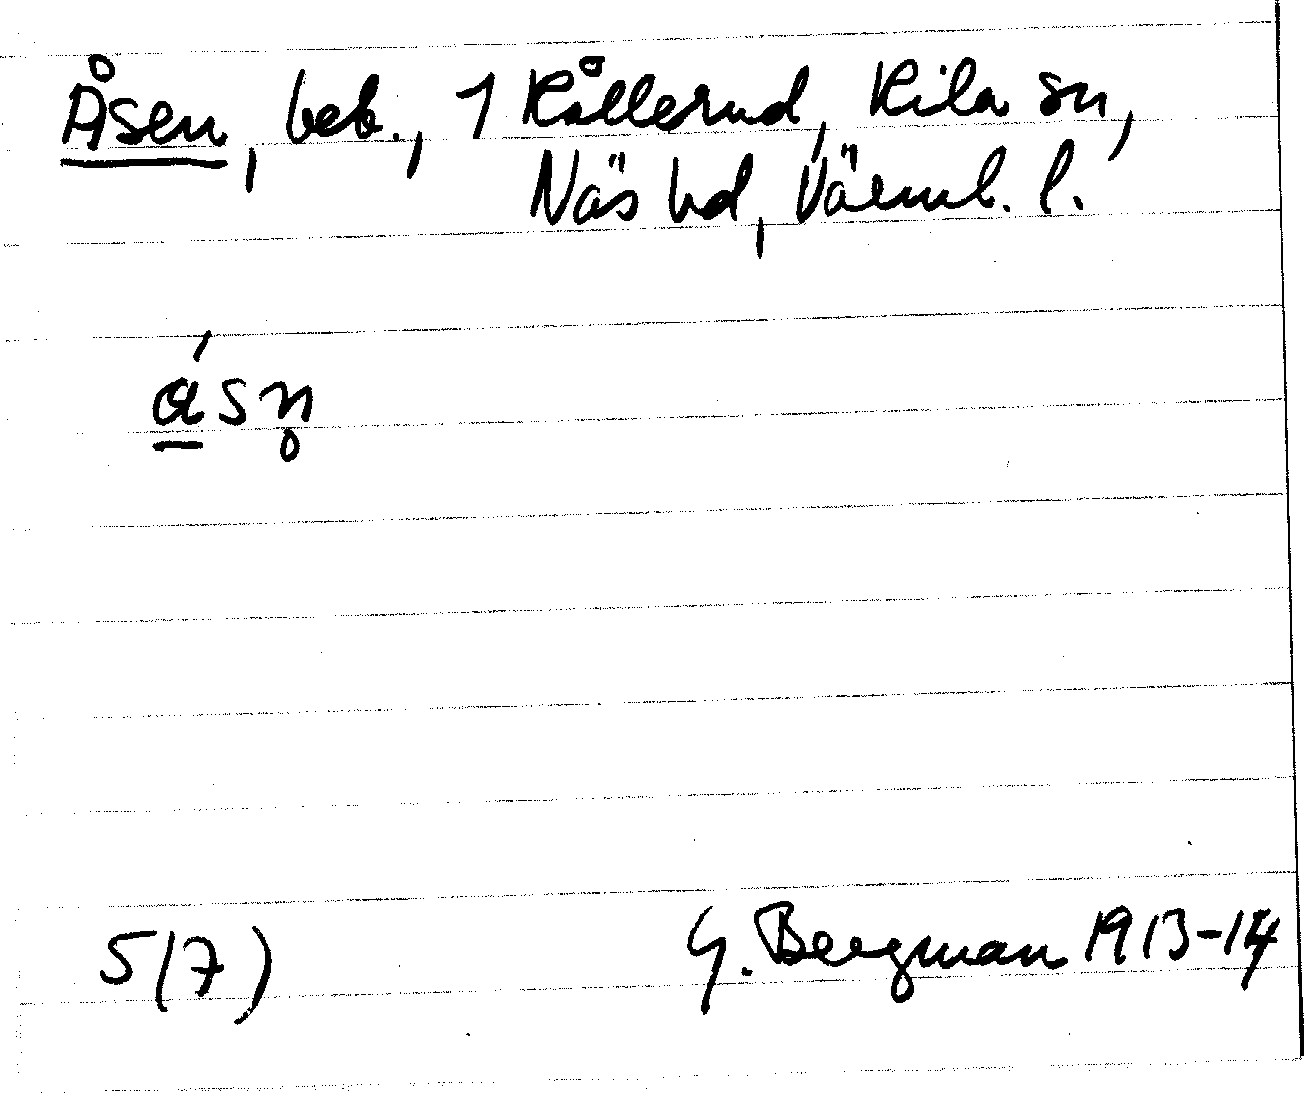 Åsen, beb., 1 Kållerud, Kila sn,
Näs hd, Värml. l.
ɑ̱́sn̥
5(7)
G. Bergman 1913-14